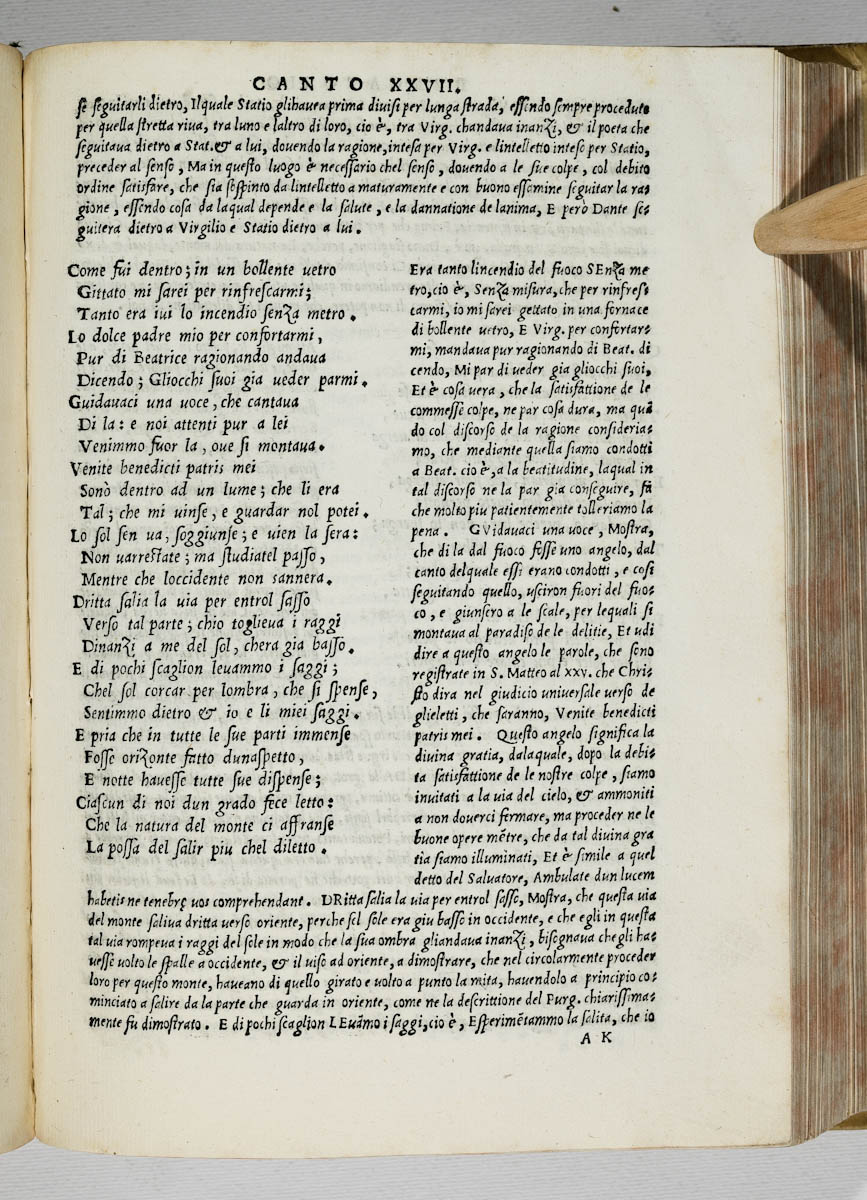 CANTO XXVII.
se seguitarli dietro, Il quale Statio gli havea prima divisi per lunga strada, essendo sempre proceduto
per quella stretta riva, tra luno e laltro di loro, cio è, tra Virg. chandava inanzi, & il poeta che
seguitava dietro a Stat. & a lui, dovendo la ragione, intesa per Virg. e lintelletto inteso per Statio,
preceder al senso, Ma in questo luogo è necessario chel senso, dovendo a le sue colpe, col debito
ordine satisfare, che sia sospinto da lintelletto a maturamente e con buono essamine seguitar la ra=
gione, essendo cosa da laqual depende e la salute, e la dannatione de lanima, E però Dante se=
guitera dietro a Virgilio e Statio dietro a lui.
Come fui dentro; in un bollente vetro
Gittato mi sarei per rinfrescarmi;
Tanto era ivi lo incendio senza metro.
Lo dolce padre mio per confortarmi,
Pur di Beatrice ragionando andava
Dicendo; Gliocchi suoi gia veder parmi.
Guidavaci una voce, che cantava
Di la: e noi attenti pur a lei
Venimmo fuor la, ove si montava.
Venite benedicti patris mei
Sonò dentro ad un lume; che li era
Tal; che mi vinse, e guardar nol potei.
Lo sol sen va, soggiunse; e vien la sera:
Non varrestate; ma studiatel passo,
Mentre che loccidente non sannera.
Dritta salia la via per entrol sasso
Verso tal parte; chio toglieva i raggi
Dinanzi a me del sol, chera gia basso.
E di pochi scaglion levammo i saggi;
Chel sol corcar per lombra, che si spense,
Sentimmo dietro & io e li miei saggi.
E pria che in tutte le sue parti immense
Fosse orizonte fatto dunaspetto,
E notte havesse tutte sue dispense;
Ciascun di noi dun grado fece letto:
Che la natura del monte ci affranse
La possa del salir piu chel diletto.
Era tanto lincendio del fuoco SEnza me
tro, cio è, Senza misura, che per rinfres
carmi, io mi sarei gettato in una fornace
di bollente vetro, E Virg. per confortar=
mi, mandava pur ragionando di Beat. di
cendo, Mi par di veder gia gliocchi suoi,
Et è cosa vera, che la satisfattione de le
commesse colpe, ne par cosa dura, ma quā
do col discorso de la ragione consideria=
mo, che mediante quella siamo condotti
a Beat. cio è, a la beatitudine, laqual in
tal discorso ne la par gia conseguire, fa
che molto piu patientemente tolleriamo la
pena. GVidavaci una voce, Mostra,
che di la dal fuoco fosse uno angelo, dal
canto del quale essi erano condotti, e cosi
seguitando quello, usciron fuori del fuo=
co, e giunsero a le scale, per lequali si
montava al paradiso de le delitie, Et udi
dire a questo angelo le parole, che sono
registrate in S. Matteo al xxv. che Chri=
sto dira nel giudicio universale verso de
glieletti, che saranno, Venite benedicti
patris mei. Questo angelo significa la
divina gratia, dalaquale, dopo la debi=
ta satisfattione de le nostre colpe, siamo
invitati a la via del cielo, & ammoniti
a non doverci fermare, ma proceder ne le
buone opere mētre, che da tal divina gra
tia siamo illuminati, Et è simile a quel
detto del Salvatore, Ambulate dun lucem
habetis ne tenebrę vos comprehendant. DRitta salia la via per entrol sasso, Mostra, che questa via
del monte saliva dritta verso oriente, perche sel sole era giu basso in occidente, e che egli in questa
tal via rompeva i raggi del sole in modo che la sua ombra gliandava inanzi, bisognava che gli ha=
vesse volto le spalle a occidente, & il viso ad oriente, a dimostrare, che nel circolarmente proceder
loro per questo monte, haveano di quello girato e volto a punto la mita, havendolo a principio co=
minciato a salire da la parte che guarda in oriente, come ne la descrittione del Purg. chiarissima=
mente fu dimostrato. E di pochi scaglion LEvāmo i saggi, cio è, Esperimētammo la salita, che io
A K